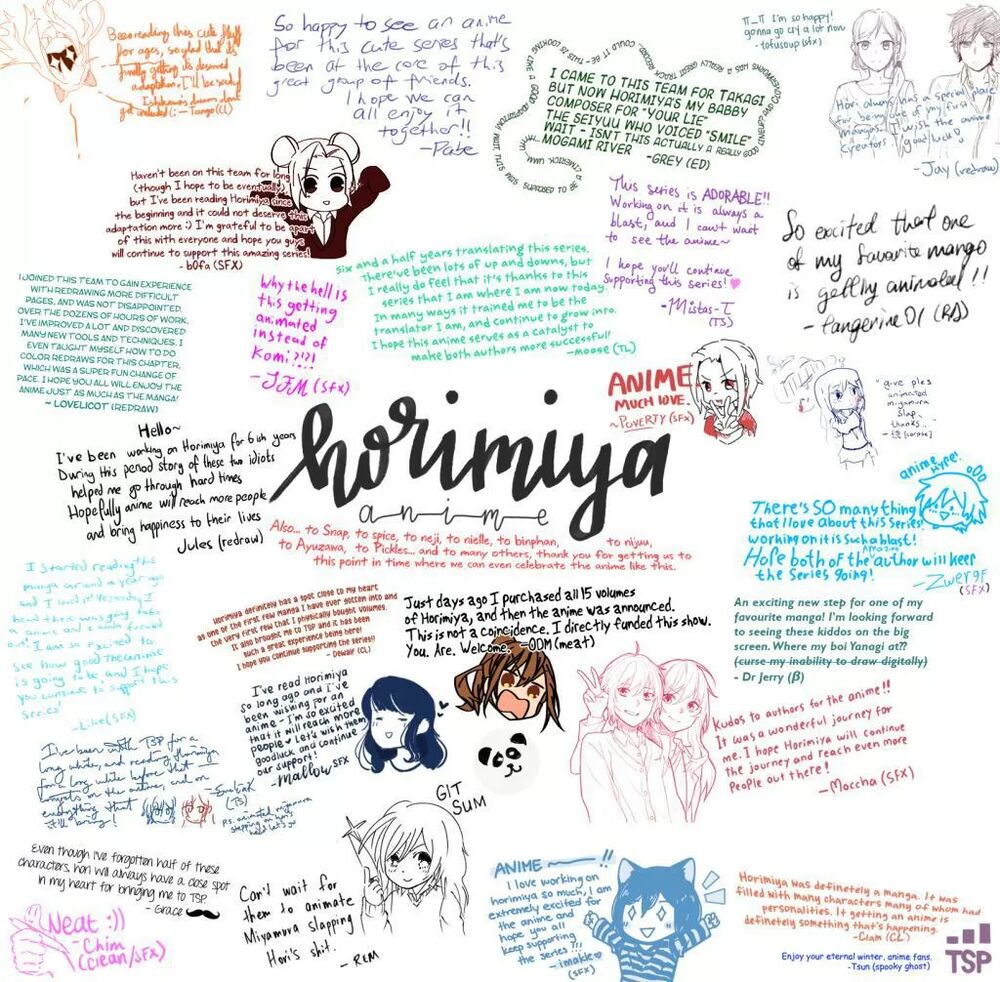 Been reading this cute fluff
for ages, so glad that its
finally getting its deserved
adaptation. I'll be sad if
Ishikawa's drama don't
get included (; - Tango (CL)
So happy to see an anime
for this cute series that's
been at the core of this
great group of friends.
I hope we can
all enjoy it
together!!
- Pabe
I CAME TO THIS TEAM FOR TAKAGI
BUT NOW HORIMIYA'S MY BABBY
COMPOSER FOR "YOUR LIE"
THE SEIYUU WHO VOICED "SMILE"
WAIT - ISN'T THIS ACTUALLY A REALLY GOOD
MOGAMI RIVER -GREY (ED)
CLOVERWORKS HAS A REALLY GREAT TRACK RECORD, COULD IT BE THIS IS LOOKING LIKE A GOOD ADAPTATION?
π_π I'm so happy!
gonna go cry a lot now
- tofusoup (sfx)
Hori always has a special place
for being one of my first
mangas. I wish the anime
creators good luck♡
- Jay (redraw)
Haven't been on this team for long
(though I hope to be eventually)
but I've been reading Horimiya since
the beginning and it could not deserve this
adaptation more :) I'm grateful to be apart
of this with everyone and hope you guys
will continue to support this amazing series!
- b0fa (SFX)
This series is ADORABLE!!
Working on it is always a
blast, and I can't wait
to see the anime~
I hope you'll continue
supporting this series!♥
- Mistas-T
(TS)
So excited that one
of my favourite manga
is getting animated!!
- tangerine01 (RD)
I JOINED THIS TEAM TO GAIN EXPERIENCE
WITH REDRAWING MORE DIFFICULT
PAGES, AND WAS NOT DISAPPOINTED.
OVER THE DOZENS OF HOURS OF WORK,
I'VE IMPROVED A LOT AND DISCOVERED
MANY NEW TOOLS AND TECHNIQUES. I
EVEN TAUGHT MYSELF HOW TO DO
COLOR REDRAWS FOR THIS CHAPTER,
WHICH WAS A SUPER FUN CHANGE OF
PACE. I HOPE YOU ALL WILL ENJOY THE
ANIME JUST AS MUCH AS THE MANGA!
~ LOVELICOT (REDRAW)
Why the hell is
this getting
animated
instead of
Komi?!?!
- JFM (SFX)
Six and a half years translating this series.
There've been lots of up and downs, but
I really do feel that it's thanks to this
series that I am where I am now today.
In many ways it trained me to be the
translator I am, and continue to grow into.
I hope this anime serves as a catalyst to
make both authors more successful!
-moose (TL)
ANIME
MUCH LOVE.
~POVERTY (SFX)
"give ples
animated
miyamura
slap
thanks.."
Hello~
I've been working on Horimiya for 6ish years
During this period story of these two idiots
helped me go through hard times
Hopefully anime will reach more people
and bring happiness to their lives
Jules (redraw)
horimiya
anime
Also... to Snap, to spice, to neji, to nielle, to binphan, to nijuu,
to Ayuzawa, to Pickles... and to many others, thank you for getting us to
this point in time where we can even celebrate the anime like this.
anime
hype!
There's SO many thing
that I love About this Series!
working on it is Such a blast!
Hope both of the Amazing author will keep
the Series going!
- Zwergf
(SFX)
I started reading this
manga around a year ago
and I loved it! Yesterday I
heard there was going to be
a anime and I kinda freaked
out! I am so excited to
see how good the anime
is going to be and I hope
you continue to support this
series!
-Lilie (SFX)
Horimiya definitely has a spot close to my heart
as one of the first few manga I have ever gotten into and
the very first row that I physically bought volumes.
It also brought me to TSP and it has been
such a great experience being here!!
I hope you continue supporting the series!!
- Dewair (CL)
Just days ago I purchased all 15 volumes
of Horimiya, and then the anime was announced.
This is not a coincidence. I directly funded this show.
You. Are. Welcome. -ODM (meat)
An exciting new step for one of my
favourite manga! I'm looking forward
to seeing these kiddos on the big
screen. Where my boi Yanagi at??
(curse my inability to draw digitally)
- Dr Jerry (β)
I've read Horimiya
so long ago and I've
been wishing for an
anime - I'm so excited
that it will reach more
people ♥ Let's wish them
goodluck and continue
our support!
-Mallow SFX
Kudos to authors for the anime!!
It was a wonderful journey for
me. I hope Horimiya will continue
the journey and reach even more
People out there!
-Moccha (SFX)
I've been with TSP for a
long while, and reading Horimiya
for a long while before that
(TS)
p.s. animated miyamura
stepping on hori's
head let's go
GIT
SUM
Even though I've forgotten half of these
characters, hori will always have a close spot
in my heart for bringing me to TSP.
- Grace
Neat :))
- Chim
(clean/SFX)
Can't wait for
them to animate
Miyamura slapping
Hori's shit.
- RLM
ANIME ~!!
I love working on
horimiya so much, I am
extremely excited for
the anime and
hope you all
keep supporting
the series!!!
- imakle♡
(SFX)
Horimiya was definetely a manga. It was
filled with many characters many of whom had
personalities. It getting an anime is
definetely something that's happening.
-Clam (CL)
Enjoy your eternal winter, anime fans.
-Tsun (spooky ghost)
TSP